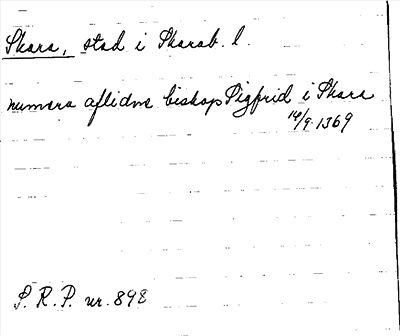 Skara, stad i Skarab. l.
numera aflidne biskop Sigfrid i Skara
14/9 1369
P. R. P. nr. 898